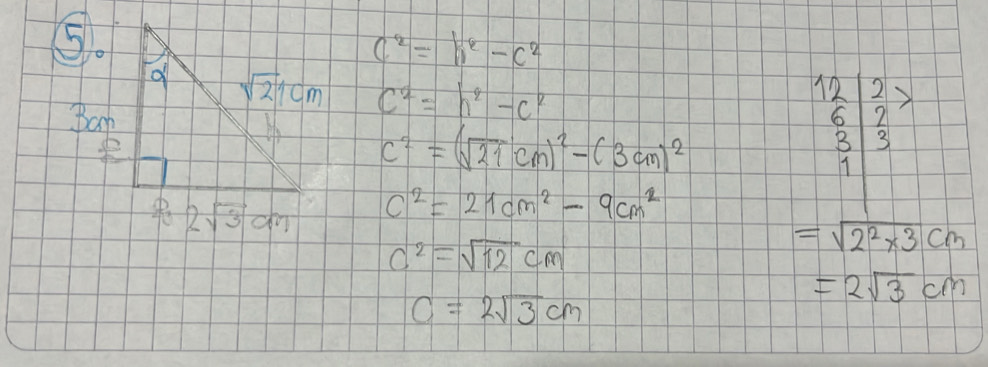 5.
α
√21 cm
3cm
h
2√3 cm
c² = h² - c²
c² = h² - c²
c² = (√21 cm)² - (3 cm)²
c² = 21cm² - 9cm²
c² = √12 cm
c = 2√3 cm
12 | 2 >
6 | 2
3 | 3
1 |
= √2² × 3 cm
= 2√3 cm